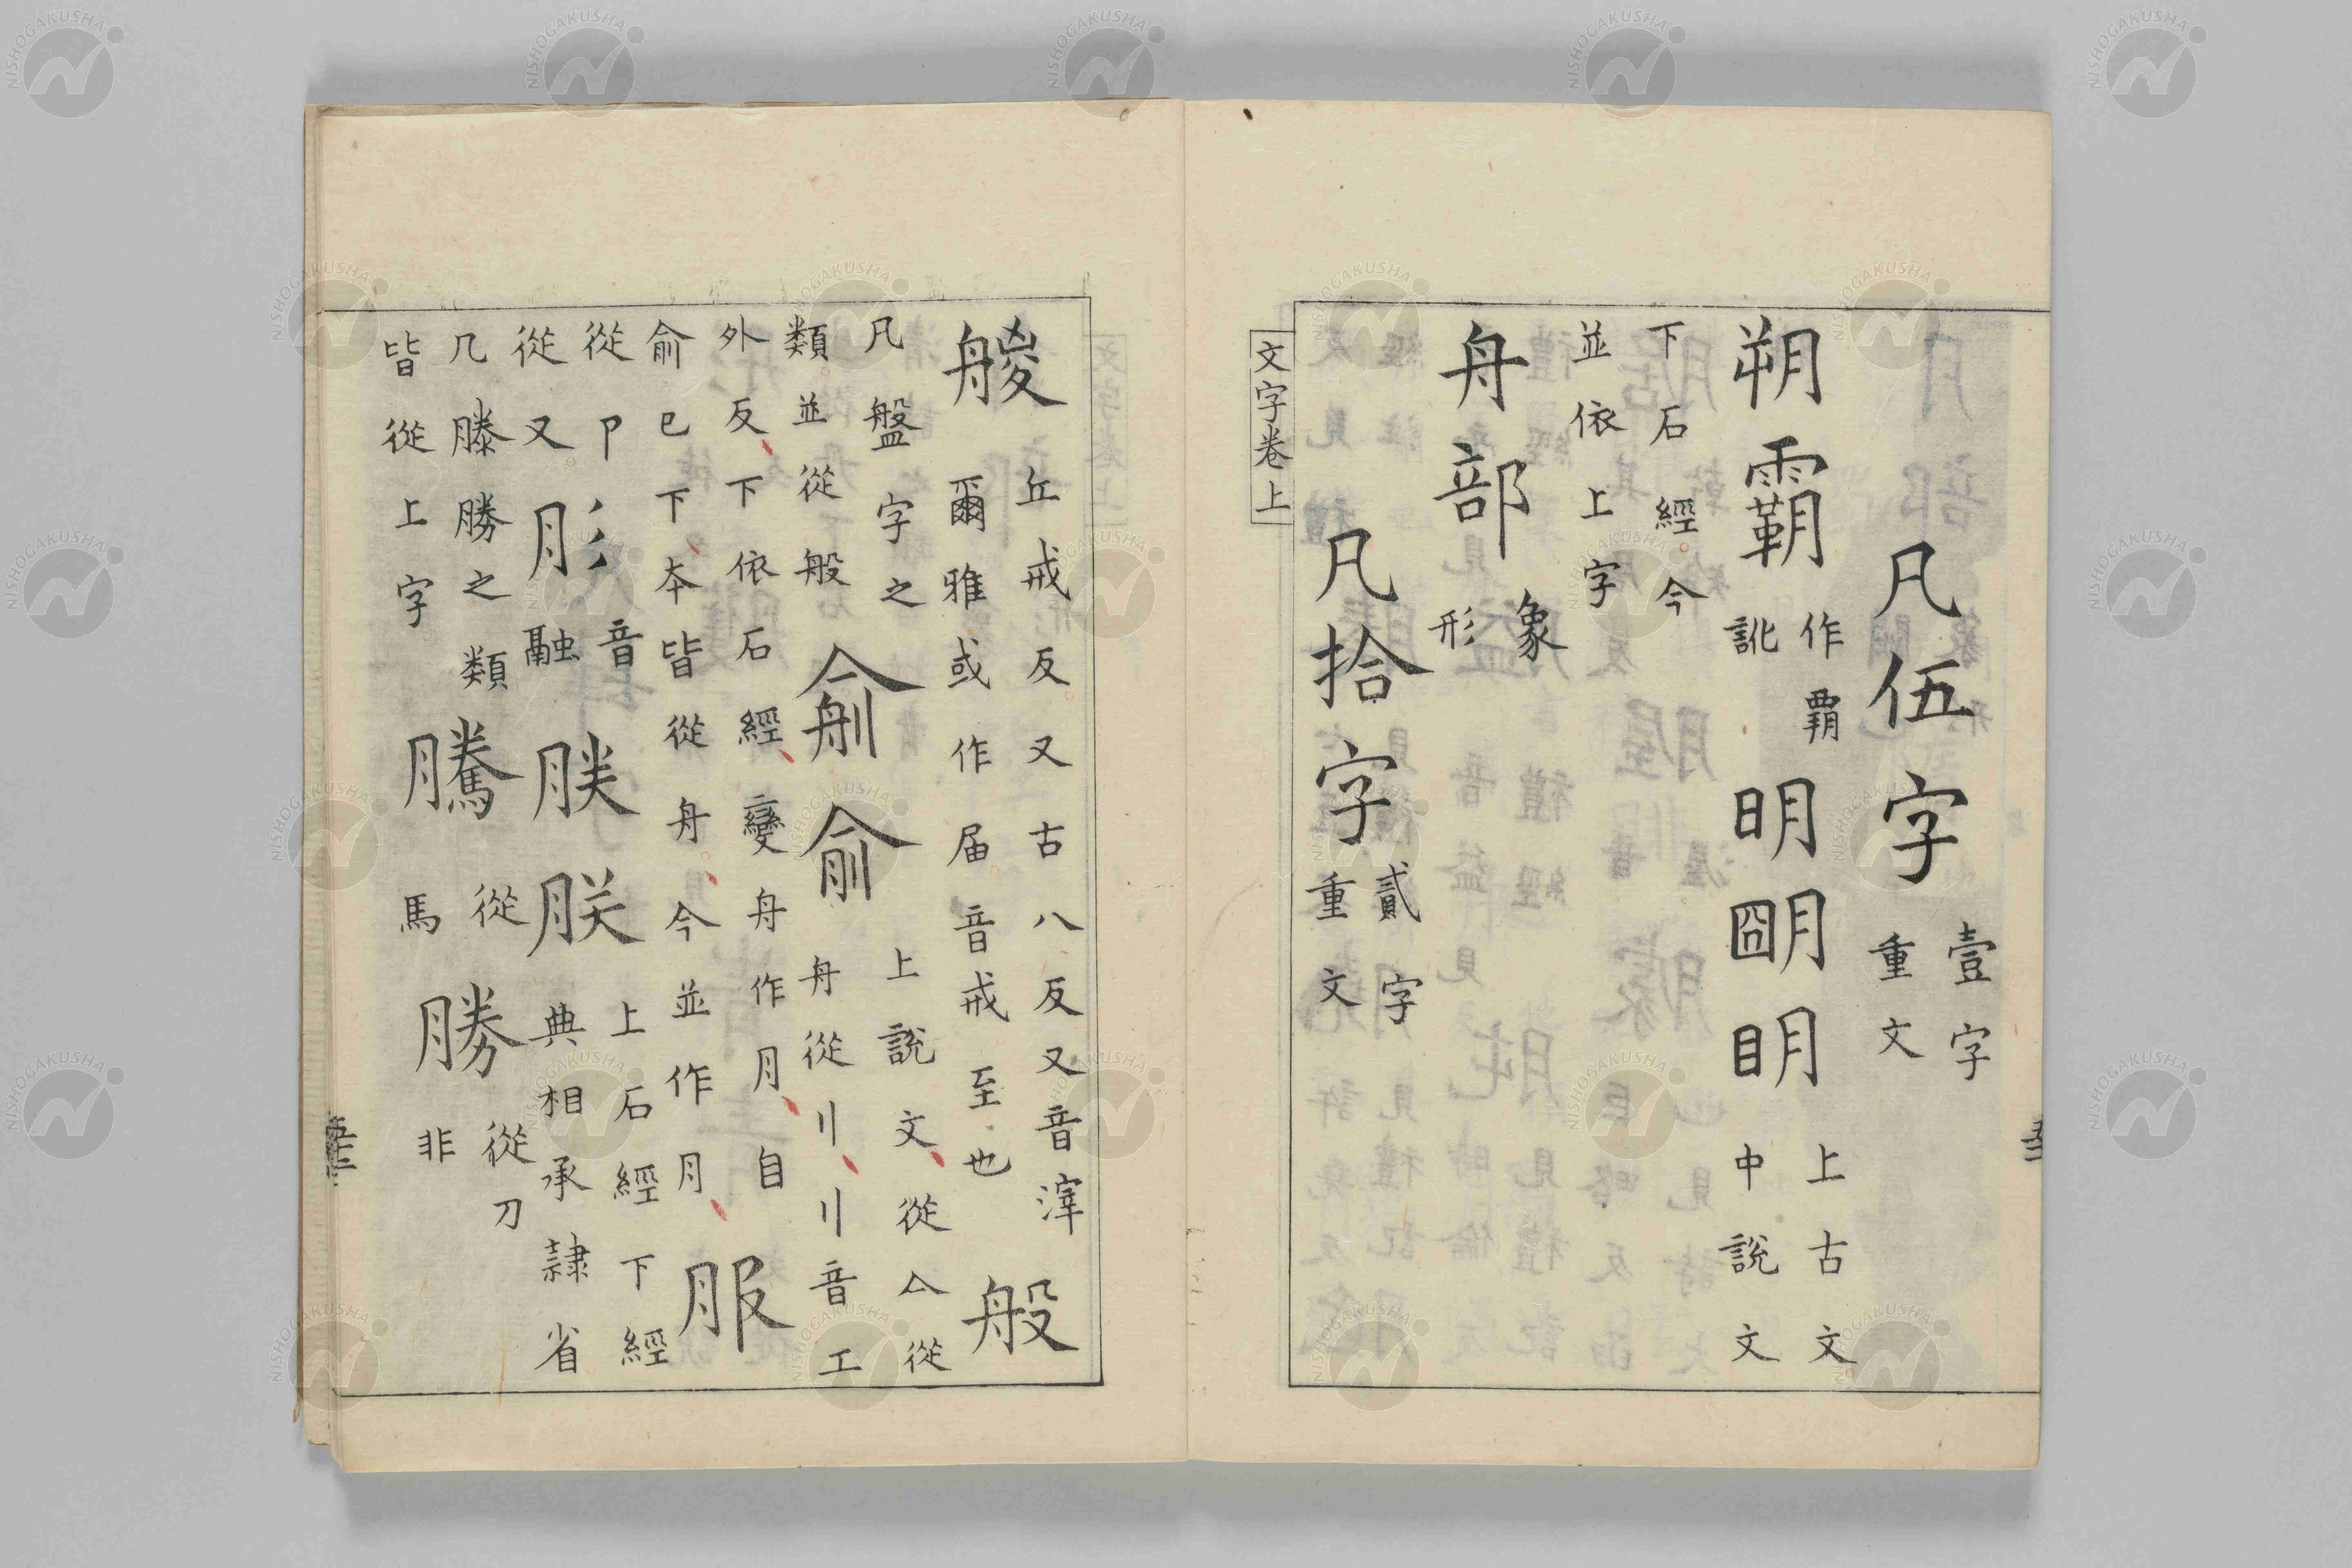 凡伍字
壹字
重文
朔霸
作覇
訛
明朙眀
上古文
中說文
下石經今
並依上字
舟部
象
形
凡拾字
貳字
重文
文字卷上
艐
丘戒反又古八反又音滓
爾雅或作届音戒至也
般
凡盤字之
類並從般
俞
上說文從亼從
舟從刂刂音工
外反下依石經變舟作月自
俞已下本皆從舟今並作月
服
從卩
從又
肜
音
融
朕
上石經下經
典相承隷省
凡滕勝之類
皆從上字
騰
從
馬
勝
從刀
非